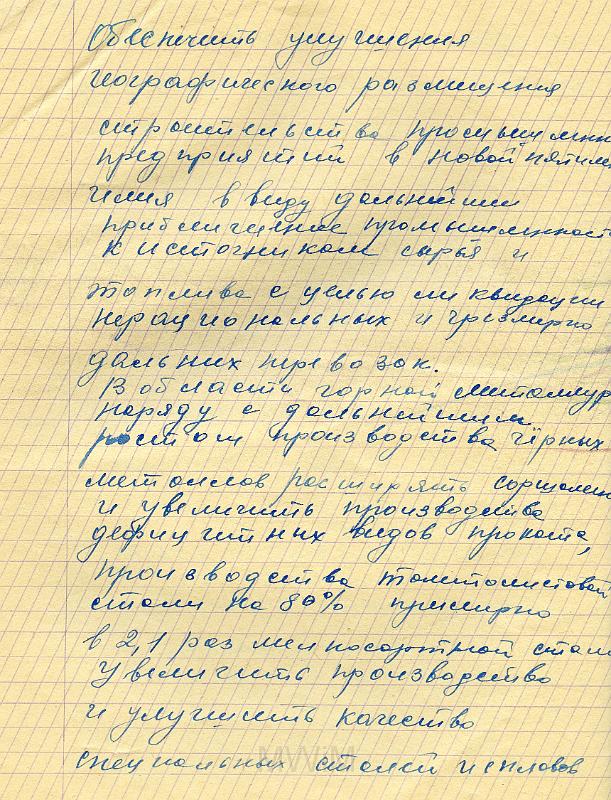 Обеспечить улучшения
географического размещения
строительства промышленн
предприятий в новой пятиле
имея в виду дальнейшие
приближение промышленност
к источникам сырья и
топлива с целью ликвидации
нерациональных и чрезмерно
дальних перевозок.
В области горной металлур
наряду с дальнейшим
ростом производства чёрных
металлов расширять
и увеличить производства
дефицитных видов проката,
производства толстолистовой
стали на 80% примерно
в 2,1 раз мелкосортной стал
Увеличить производство
и улучшить качество
специальных сталей и сплавов
MWiM